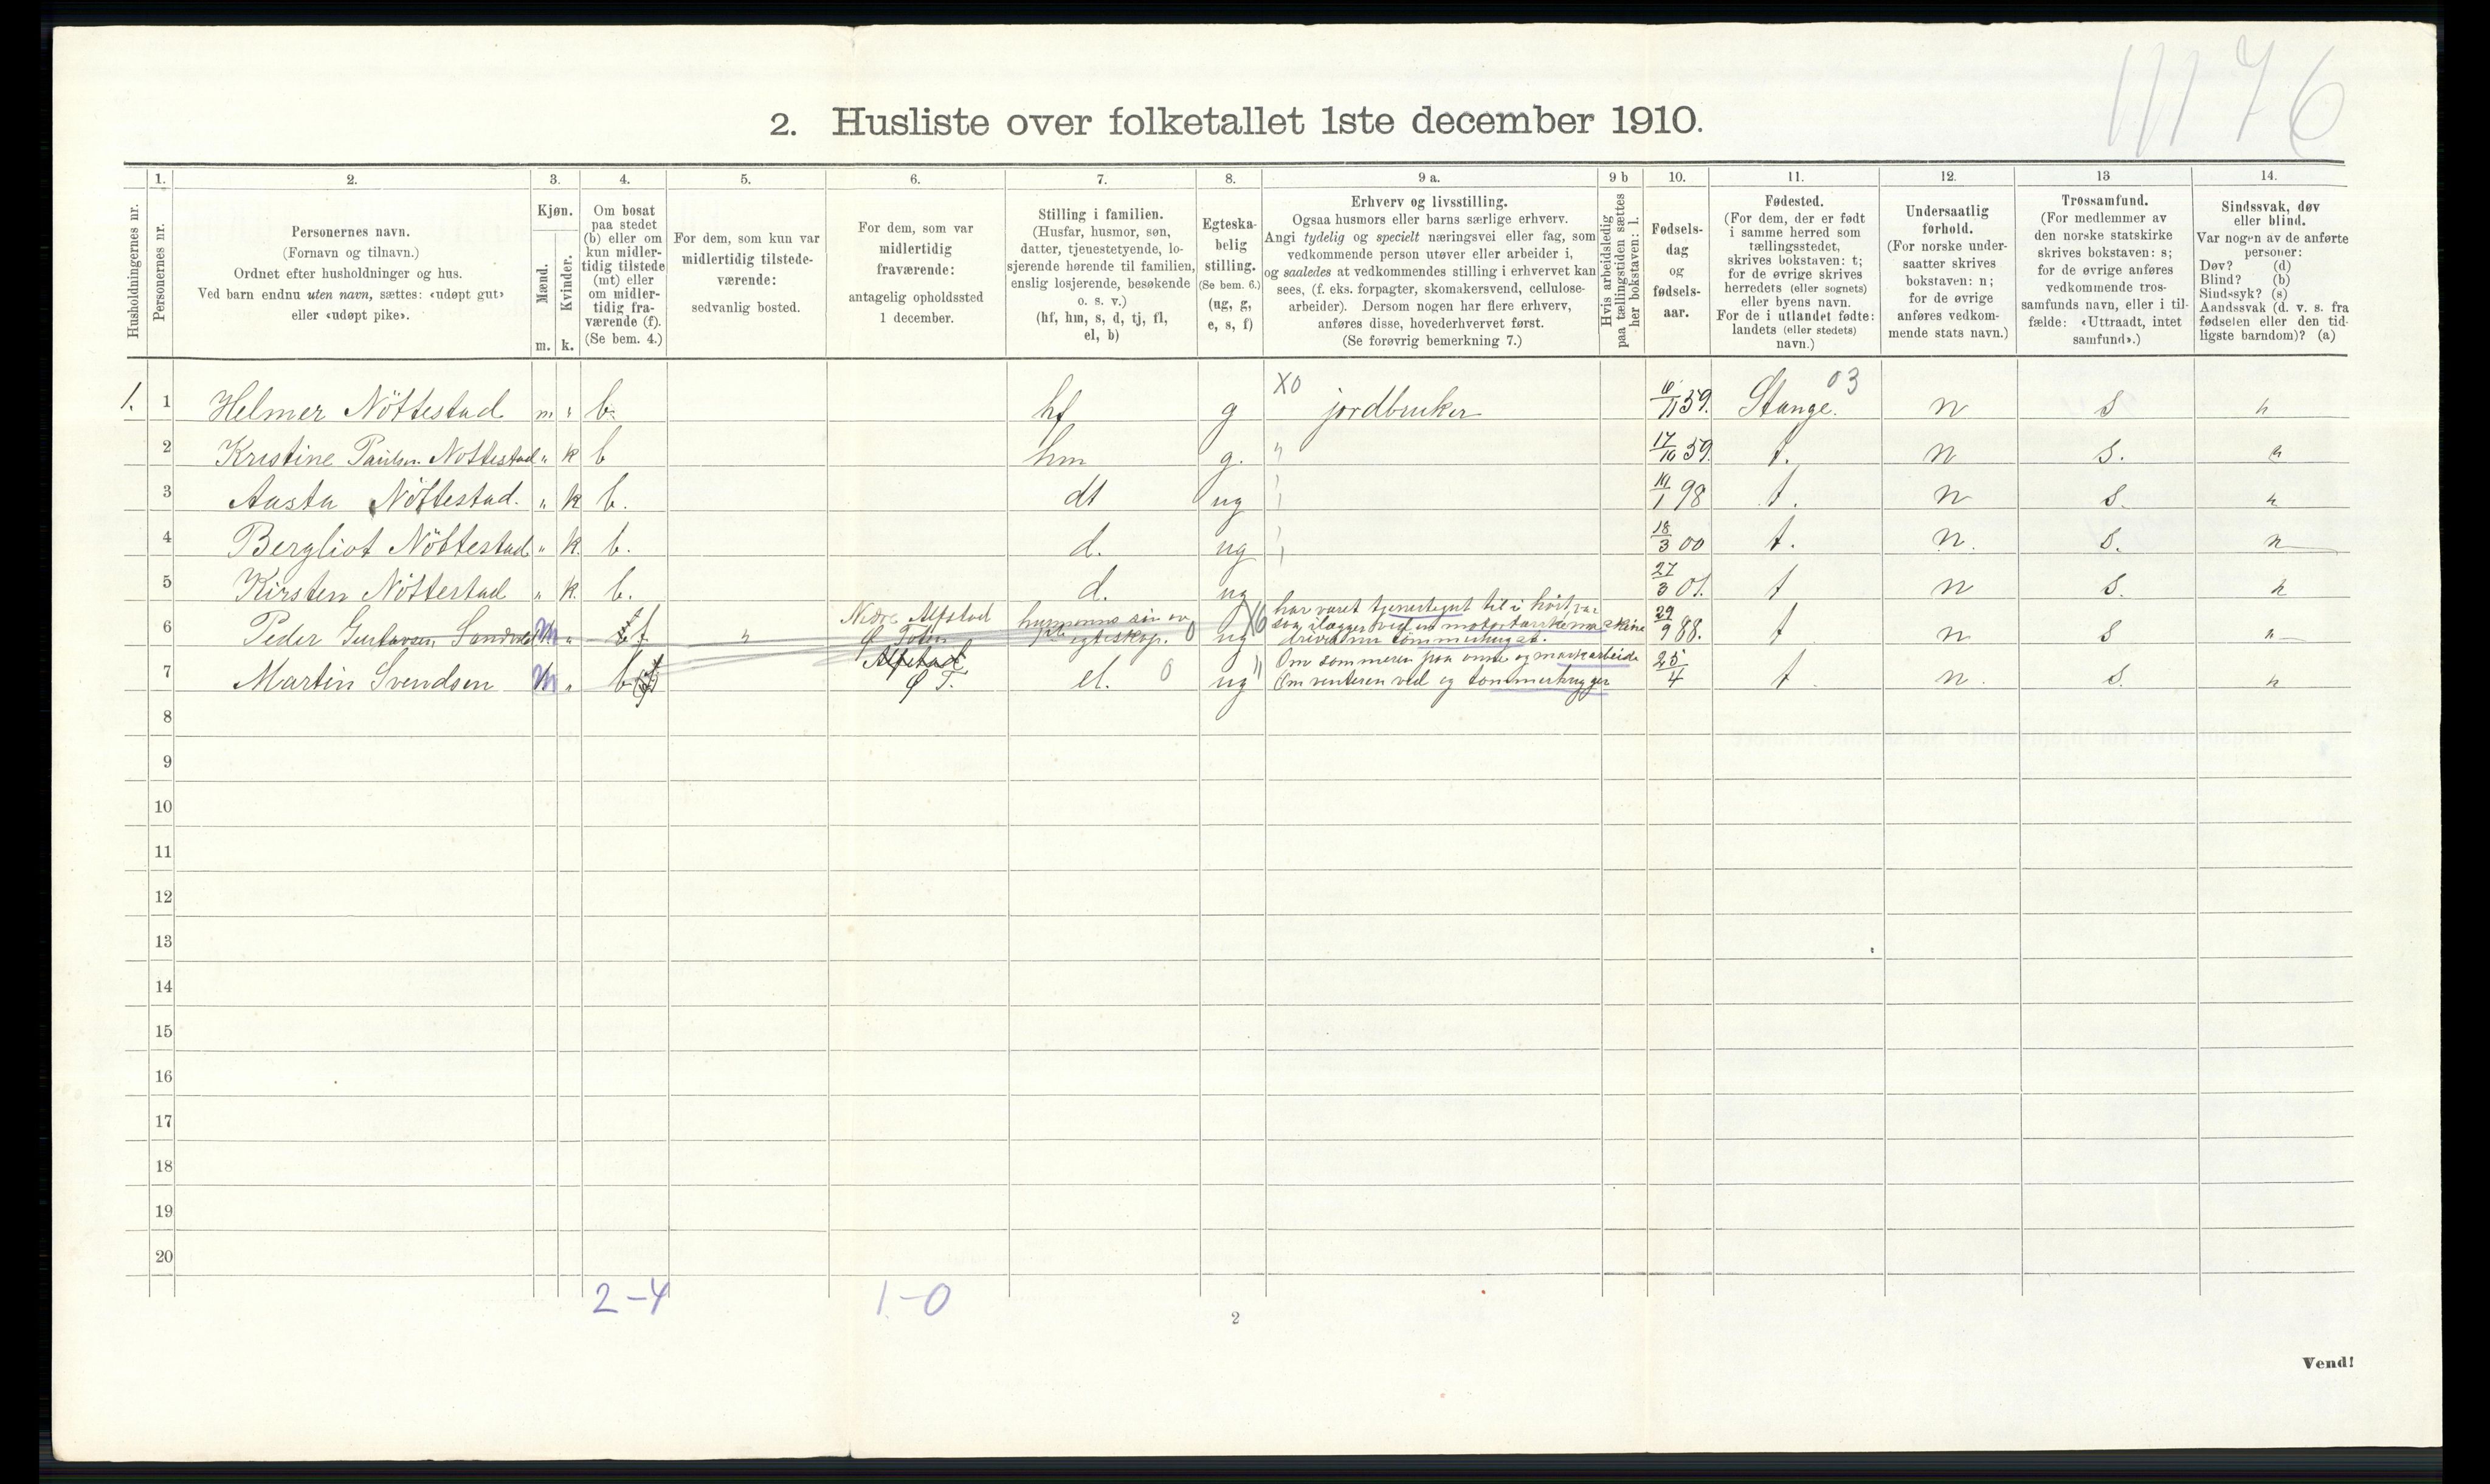 11176
2. Husliste over folketallet 1ste december 1910.
Husholdningernes nr.
1.
Personernes nr.
2.
Personernes navn.
(Fornavn og tilnavn.)
Ordnet efter husholdninger og hus.
Ved barn endnu uten navn, sættes: «udøpt gut»
eller «udøpt pike».
3.
Kjøn.
Mænd.
Kvinder.
m. k.
4.
Om bosat
paa stedet
(b) eller om
kun midler-
tidig tilstede
(mt) eller
om midler-
tidig fra-
værende (f).
(Se bem. 4.)
5.
For dem, som kun var
midlertidig tilstede-
værende:
sedvanlig bosted.
6.
For dem, som var
midlertidig
fraværende:
antagelig opholdssted
1 december.
7.
Stilling i familien.
(Husfar, husmor, søn,
datter, tjenestetyende, lo-
sjerende hørende til familien,
enslig losjerende, besøkende
o. s. v.)
(hf, hm, s, d, tj, fl,
el, b)
8.
Egteska-
belig
stilling.
(Se bem. 6.)
(ug, g,
e, s, f)
9 a.
Erhverv og livsstilling.
Ogsaa husmors eller barns særlige erhverv.
Angi tydelig og specielt næringsvei eller fag, som
vedkommende person utøver eller arbeider i,
og saaledes at vedkommendes stilling i erhvervet kan
sees, (f. eks. forpagter, skomakersvend, cellulose-
arbeider). Dersom nogen har flere erhverv,
anføres disse, hovederhvervet først.
(Se forøvrig bemerkning 7.)
9 b
Hvis arbeidsledig
paa tællingstiden sættes
her bokstaven: l.
10.
Fødsels-
dag
og
fødsels-
aar.
11.
Fødested.
(For dem, der er født
i samme herred som
tællingsstedet,
skrives bokstaven: t;
for de øvrige skrives
herredets (eller sognets)
eller byens navn.
For de i utlandet fødte:
landets (eller stedets)
navn.)
12.
Undersaatlig
forhold.
(For norske under-
saatter skrives
bokstaven: n;
for de øvrige
anføres vedkom-
mende stats navn.)
13
Trossamfund.
(For medlemmer av
den norske statskirke
skrives bokstaven: s;
for de øvrige anføres
vedkommende tros-
samfunds navn, eller i til-
fælde: «Uttraadt, intet
samfund».)
14.
Sindssvak, døv
eller blind.
Var nogen av de anførte
personer:
Døv? (d)
Blind? (b)
Sindssyk? (s)
Aandssvak (d. v. s. fra
fødselen eller den tid-
ligste barndom)? (a)
1. 1 Helmer Nöttestad m " b. hf g XO jordbruker 6/11 59. Stange. 03 n s n
2 Kristine Paulsen Nöttestad " k b hm g. " 17/10 59. t. n s. n
3 Aasta Nöttestad. " k b. dt ug " 14/1 98 t. n s. n
4 Bergliot Nöttestad " k. b. d. ug " 18/3 00 t. n. s. n
5 Kirsten Nöttestad " k. b. d. ug 27/3 01. t n s. n
6 Peder Gustavsen Sandvold m " f " Nedre Alfstad Ø Toten egteskap. 0 ug har været tjenestegut til i höst, var drivernu tömmerhugst. 29/9 88. t n s n
7 Martin Svendsen m " b Alfstad Ø T. el. 0 ug Om sommeren paa onne og markarbeide Om venteren ved og tømmerhugger 25/4 t n. s. n
8
9
10
11
12
13
14
15
16
17
18
19
20
2-4 1-0
2
Vend!